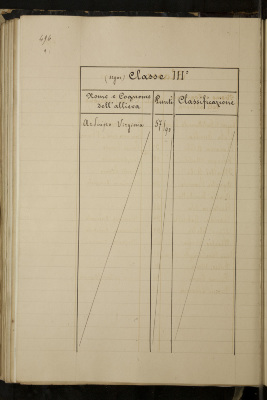 496
Classe IIIª
Nome e Cognome dell'allieva Punti Classificazione
Virginia 57/90